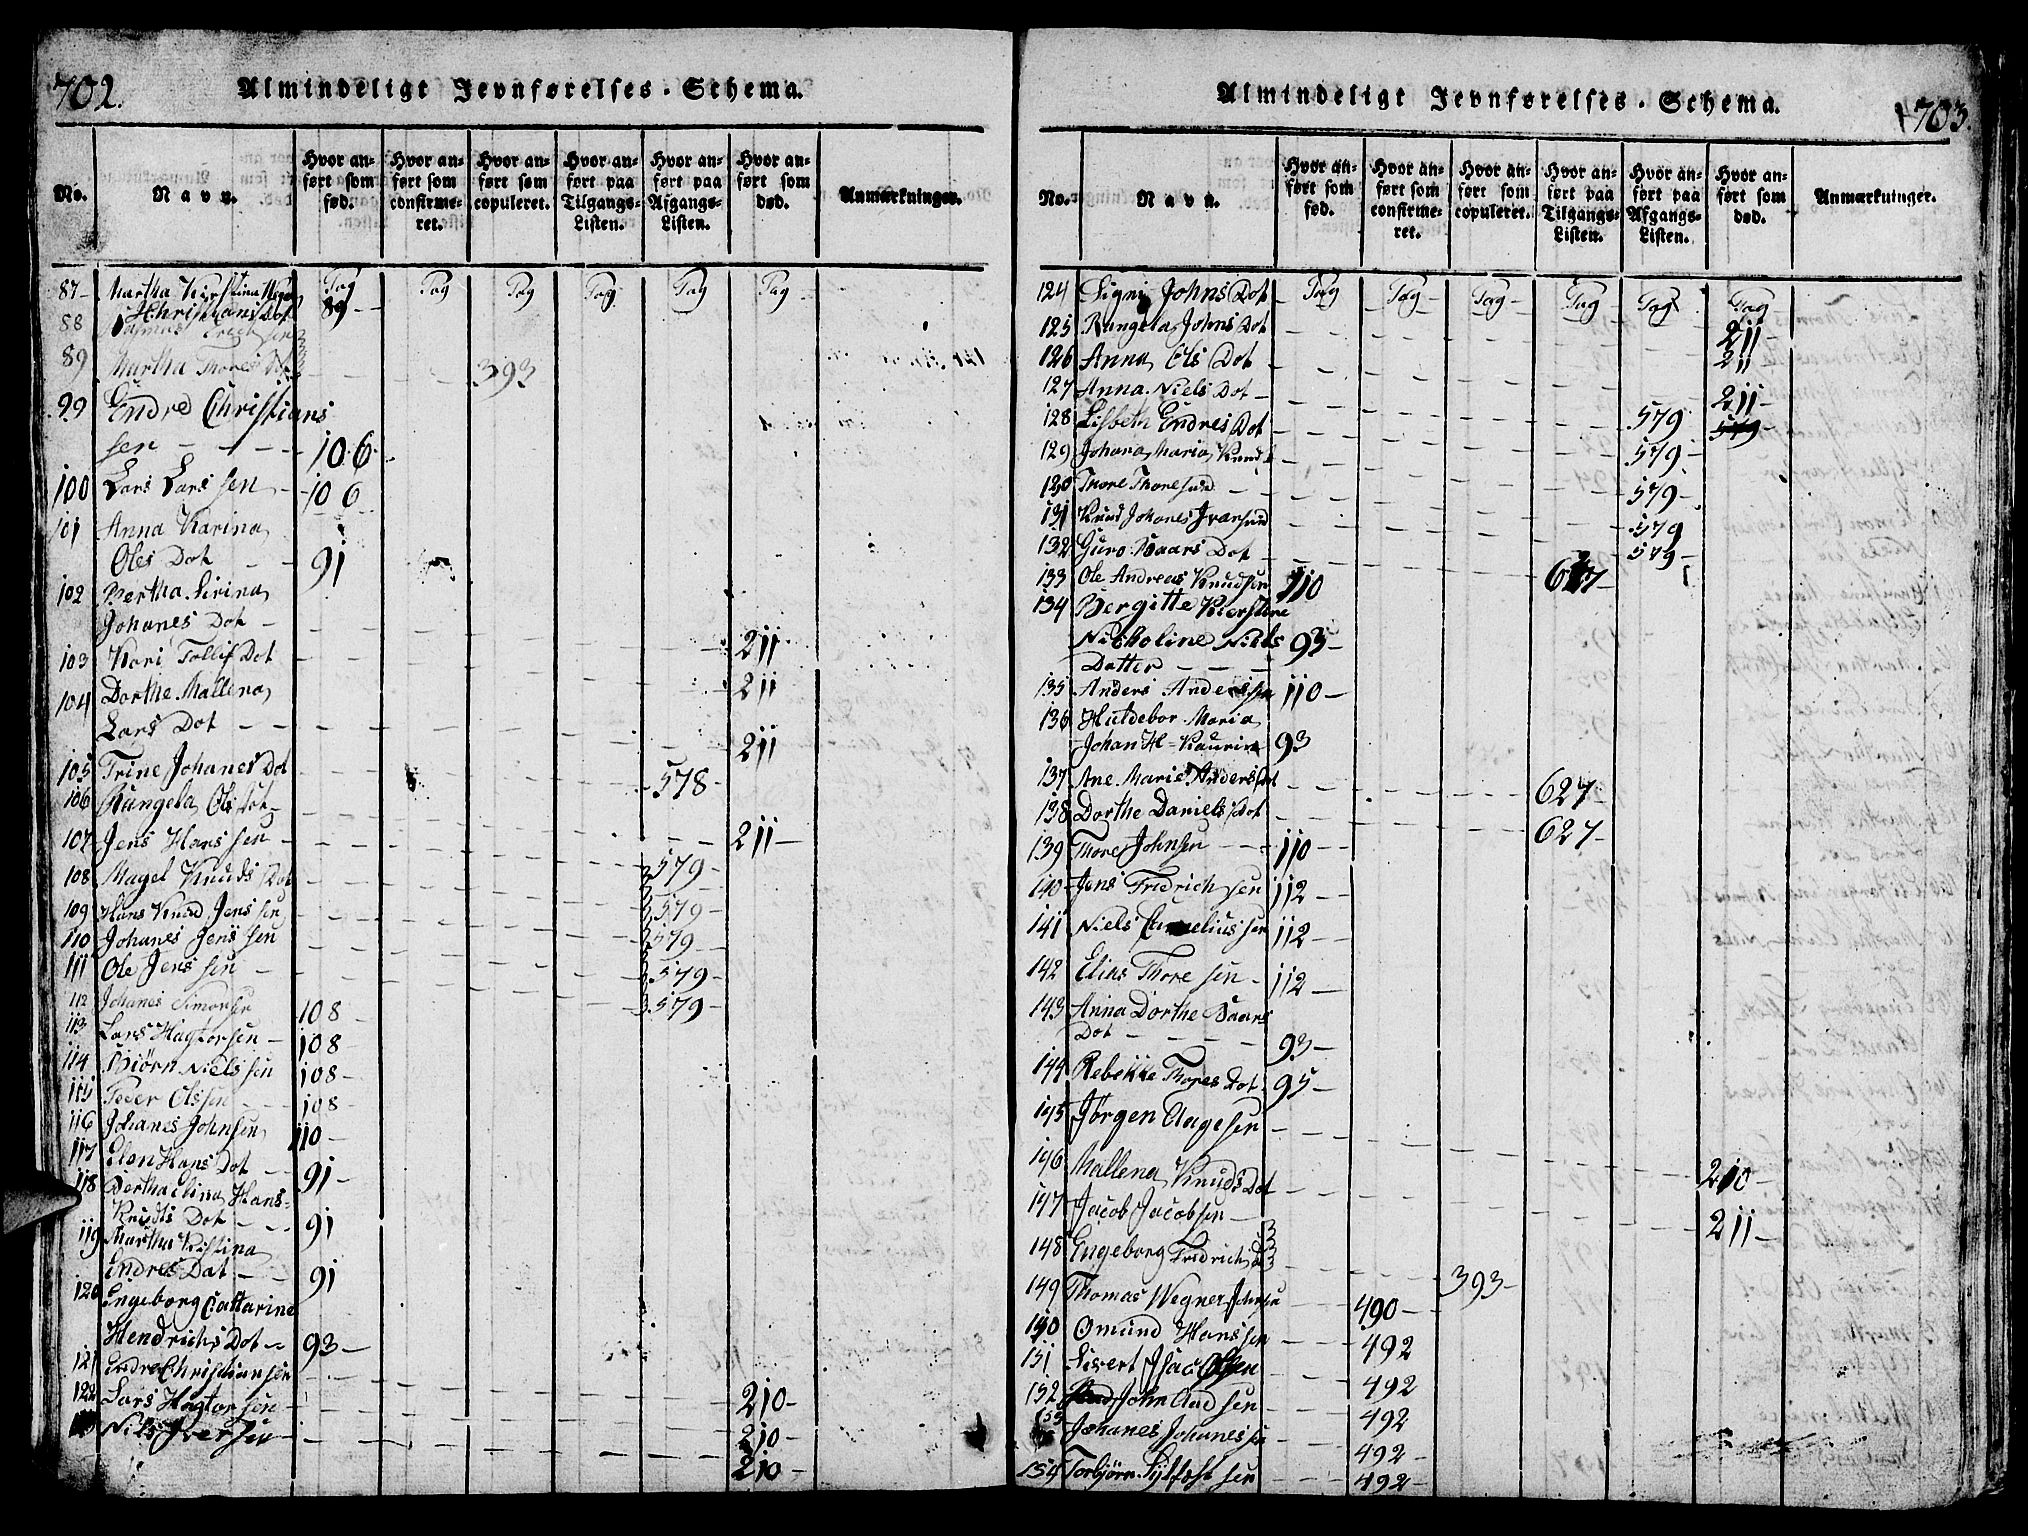 702.
Almindeligt Jevnførelses-Schema.
No.
Navn.
Hvor an-
ført som
fød.
Hvor an-
ført som
confirme-
ret.
Hvor an-
ført som
copuleret.
Hvor an-
ført paa
Tilgangs-
Listen.
Hvor an-
ført paa
Afgangs-
Listen.
Hvor an-
ført som
død.
Anmærkninger.
Pag Pag Pag Pag Pag Pag
87 Martha Kirstina
Christians Dot 89
88 Erichsen
89 Martha Thores Dot 393
99 Endre Christians
sen 106
100 Lars Larssen 106
101 Anna Karina
Oles Dot 91
102 Bertha Sirina
Johanes Dot 211
103 Kari Tollif Dot 211
104 Dorthe Mallena
Lars Dot 211
105 Trine Johanes Dot 578
106 Rangela Ols Dot 211
107 Jens Hanssen 579
108 Magel Knuds Dot 579
109 Hans Knud Jenssen 579
110 Johanes Jenssen 579
111 Ole Jenssen 579
112 Johanes Simonsen 108
113 Lars Hagtorsen 108
114 Biørn Nielssen 108
115 Peder Olssen 108
116 Johanes Johnsen 110
117 Elen Hans Dot 91
118 Bertha Elina Hans-
Knudts Dot 91
119 Martha Kistina
Endres Dat 91
120 Engeborg Cattarine
Hendrichs Dot 93
121 Endre Christiansen 210
122 Lars Hagtorsen 210
Nils Iversen 210
703.
Almindeligt Jevnførelses-Schema.
No.
Navn.
Hvor an-
ført som
fød.
Hvor an-
ført som
confirme-
ret.
Hvor an-
ført som
copuleret.
Hvor an-
ført paa
Tilgangs-
Listen.
Hvor an-
ført paa
Afgangs-
Listen.
Hvor an-
ført som
død.
Anmærkninger.
124 Signi Johns Dot Pag Pag Pag Pag Pag Pag
125 Rangela Johns Dot 211
126 Anna Ols Dot 211
127 Anna Niels Dot 211
128 Lisbeth Endres Dot 579 579
129 Johana Maria Knud 579
130 Thore Thoresen 579
131 Knud Johanes Ivarsen 579
132 Guro Baars Dot 579
133 Ole Andreas Knudsen 110 627
134 Bergitte Kierstine
Nicholine Niels 93
Datter
135 Anders Anderssen 110
136 Huldebor Maria
Johan H-Kaurin 93
137 Ane Marie Anders Dot 627
138 Dorthe Daniels Dot 627
139 Thore Johnsen 110
140 Jens Fredrichsen 112
141 Niels Corneliussen 112
142 Elias Thoresen 112
143 Anna Dorthe Baars
Dot 93
144 Rebekke Thores Dot 95
145 Jørgen Aagesen 210
146 Mallena Knuds Dot
147 Jacob Jacobsen 211
148 Engeborg Fredrichs 393
149 Thomas Wegner Johnsen 490
150 Omund Hanssen 492
151 Sivert Isac Olsen 492
152 John Aadsen 492
153 Johanes Johanessen 492
154 Torbjørn Sylfestsen 492